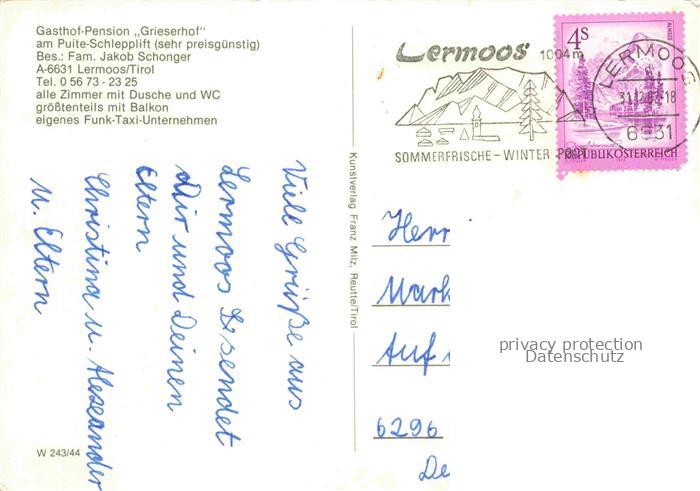 Gasthof-Pension „Grieserhof"
am Puite-Schlepplift (sehr preisgünstig)
Bes.: Fam. Jakob Schonger
A-6631 Lermoos/Tirol
Tel. 0 56 73 - 23 25
alle Zimmer mit Dusche und WC
größtenteils mit Balkon
eigenes Funk-Taxi-Unternehmen
Viele Grüße aus
Lermoos sendet
Dir und Deinen
Eltern
Christina u. Alexander
u. Eltern
W 243/44
Kunstverlag Franz Milz, Reutte/Tirol
Lermoos 1004m
SOMMERFRISCHE – WINTER
4S
REPUBLIK ÖSTERREICH
LERMOOS
6631
Herr
Mark
Auf
6296
De
privacy protection
Datenschutz